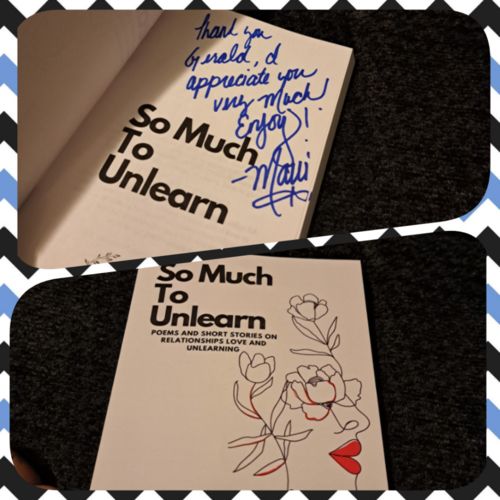 Thank you
Gerald, I
appreciate you
very much!
Enjoy!
So Much
To
Unlearn
So Much
To
Unlearn
POEMS AND SHORT STORIES ON
RELATIONSHIPS LOVE AND
UNLEARNING